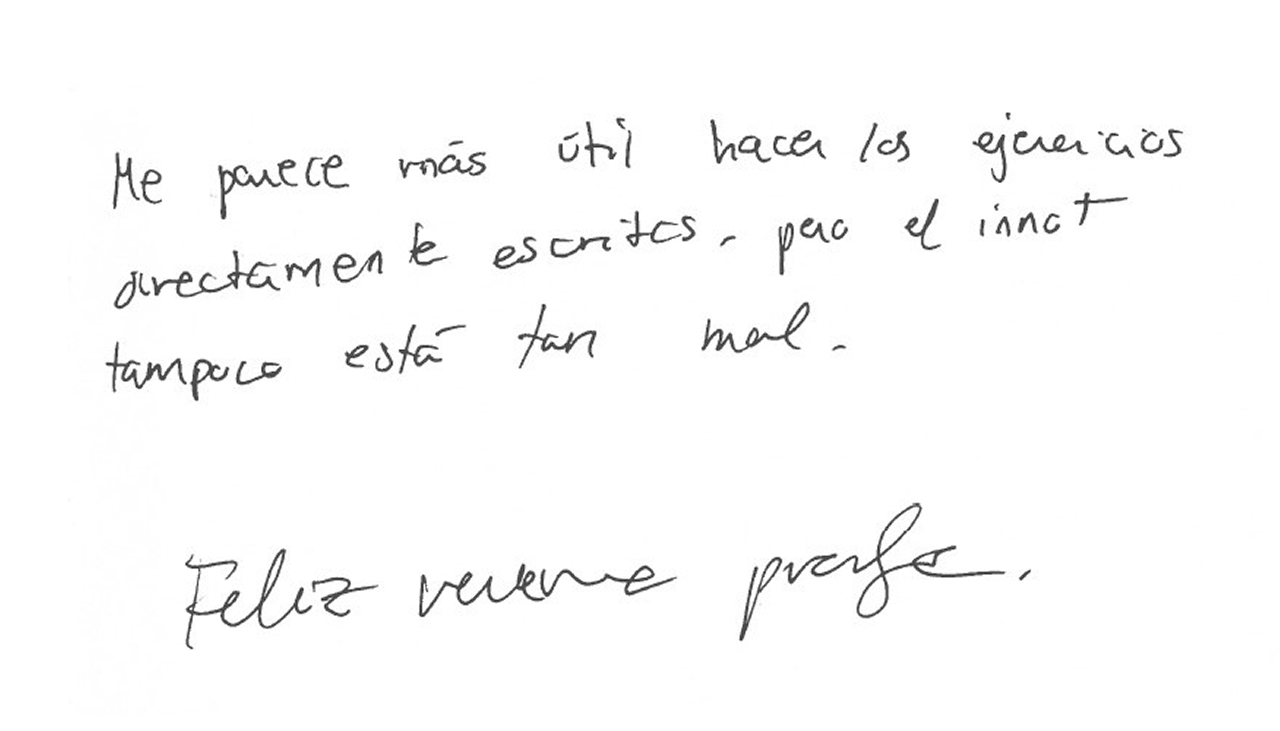 Me parece más útil hacer los ejercicios
directamente escritos, pero el innot
tampoco está tan mal.
Feliz verano profe.